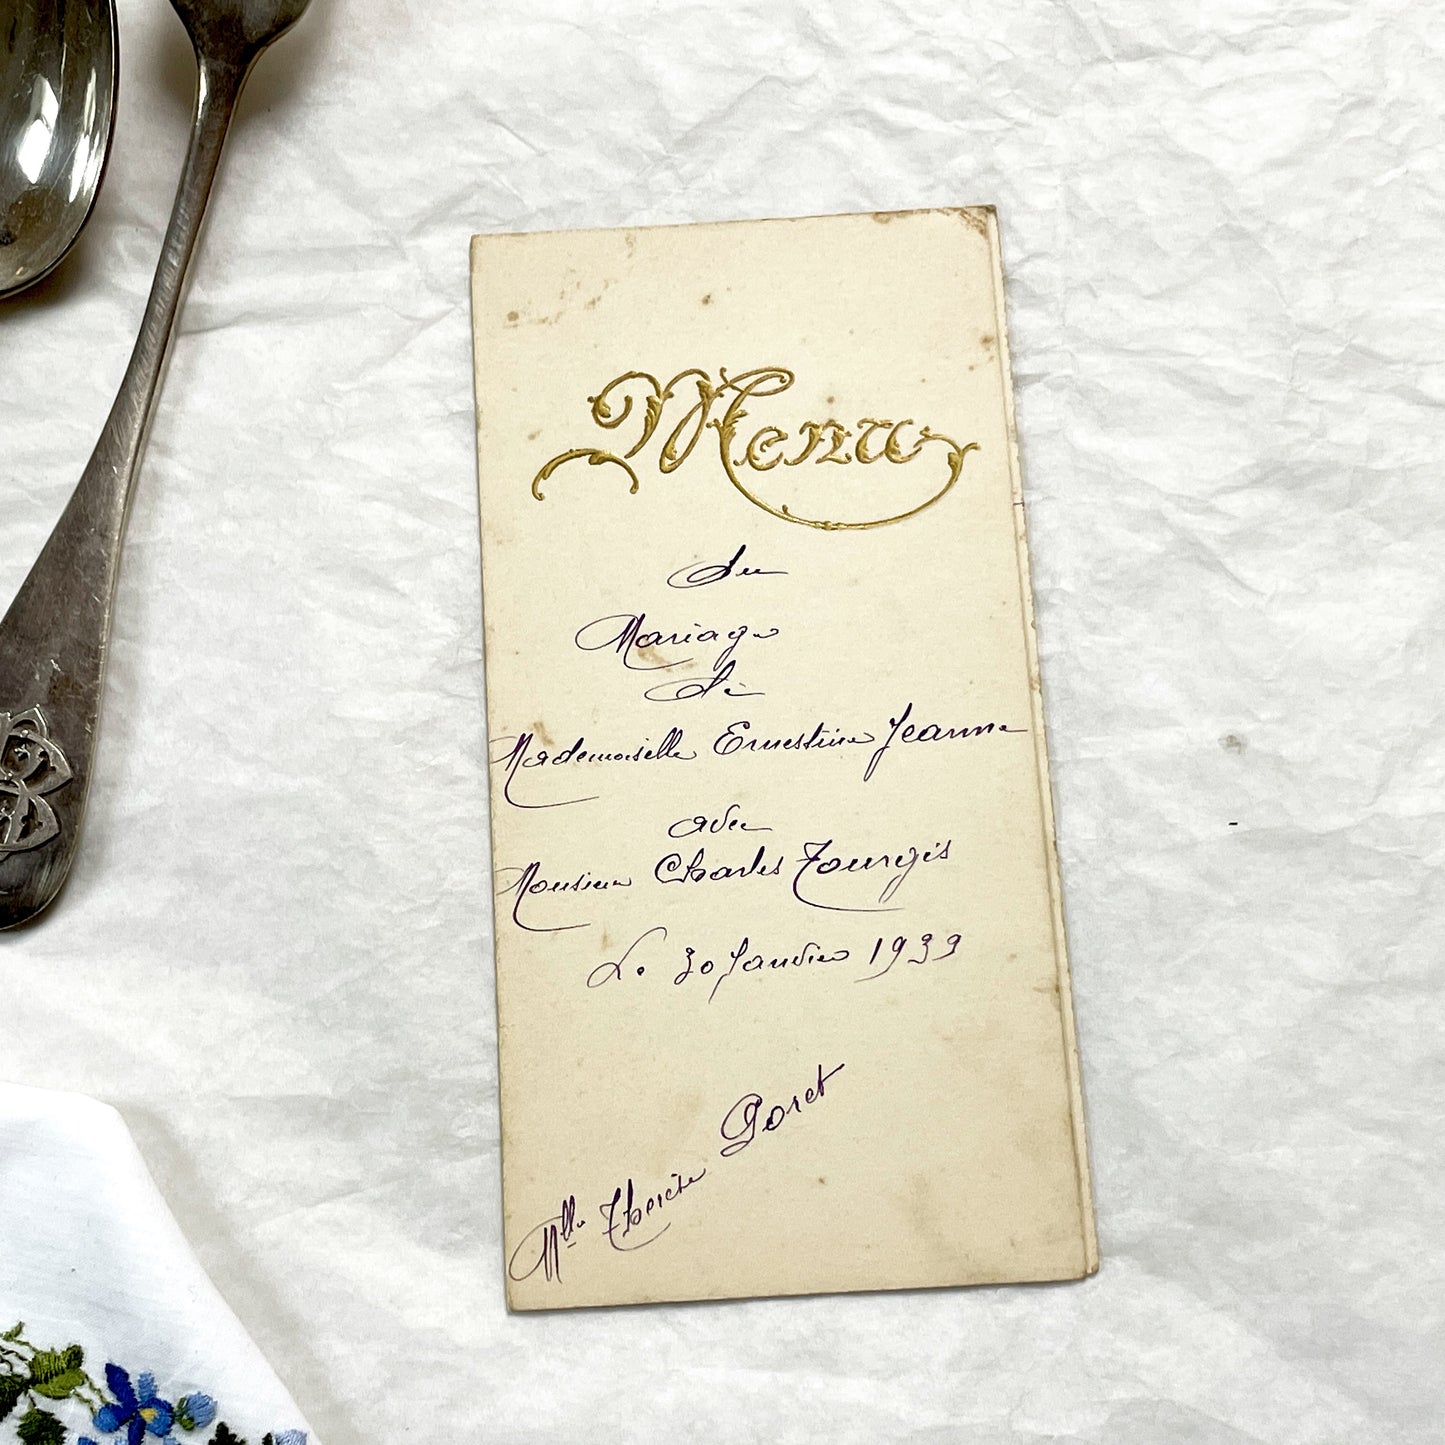 Menu
du
Mariage
de
Mademoiselle Ernestine Jeanne
avec
Monsieur Charles Tourgis
Le 30 Janvier 1939
Mlle Thérèse Goret